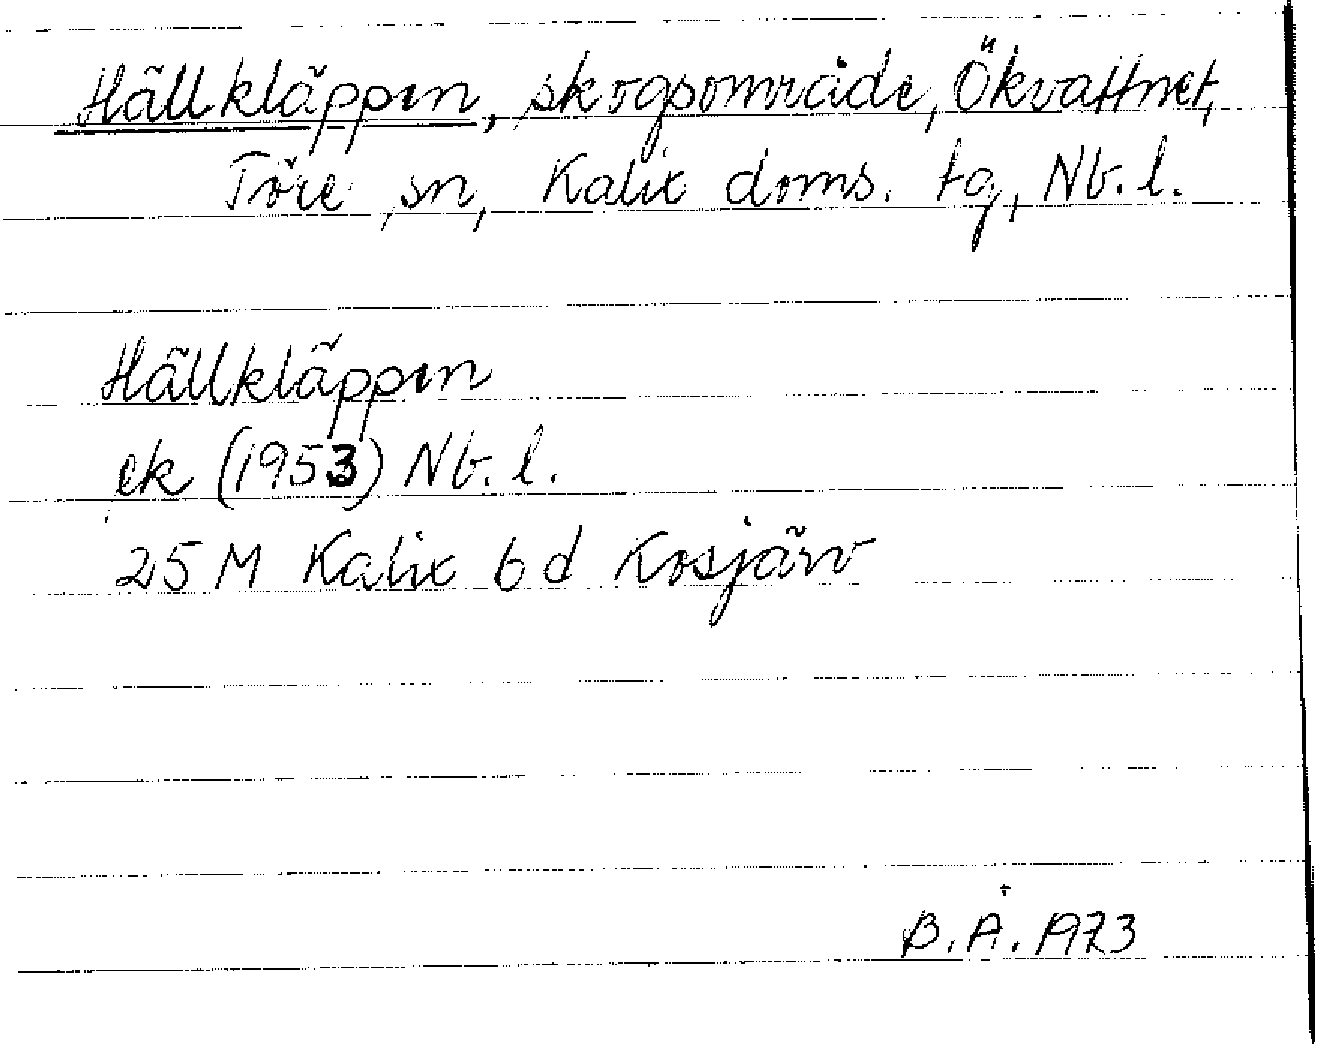 Hällkläppen, skogsområde, Ökvattnet,
Töre sn, Kalix doms. tg, Nb. l.
Hällkläppen
ek (1953) Nb. l.
25 M Kalix 6 d Kosjärv
B. Å. 1973